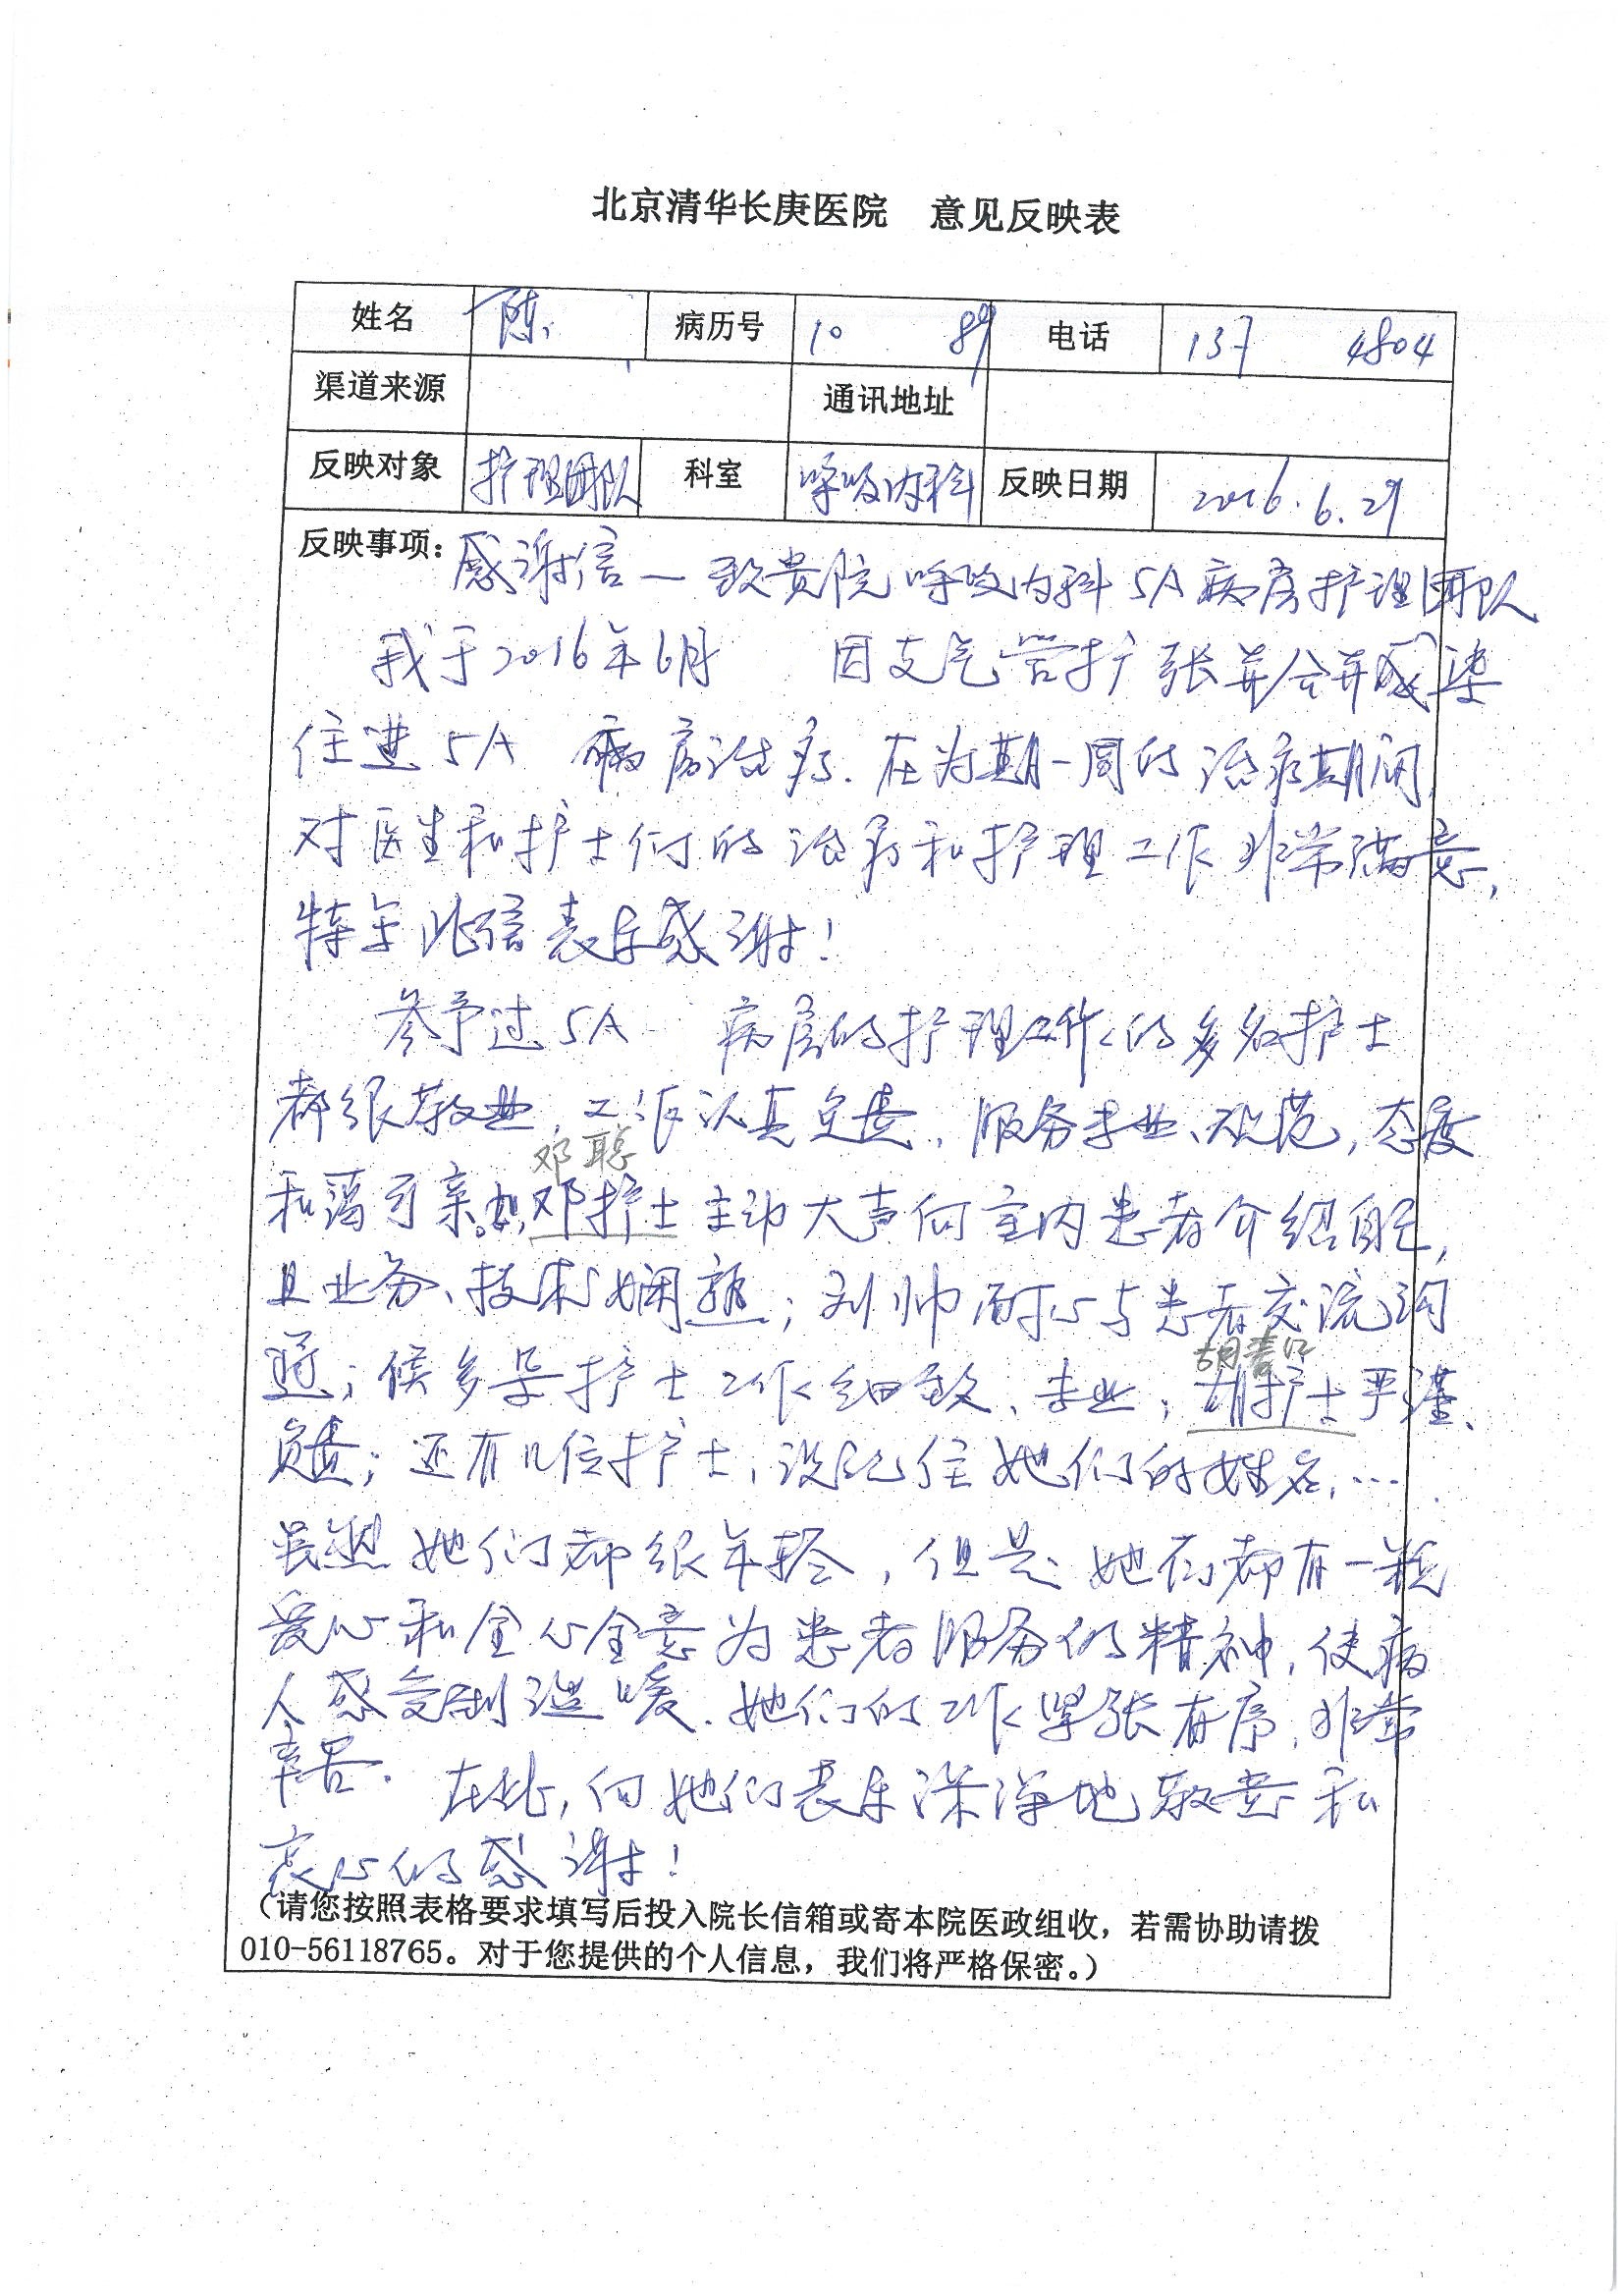 北京清华长庚医院 意见反映表
姓名 陈 病历号 10 89 电话 137 4804
渠道来源 通讯地址
反映对象 护理团队 科室 呼吸内科 反映日期 2016.6.29
反映事项: 感谢信—致贵院呼吸内科5A病房护理团队
我于2016年6月 因支气管扩张并合并感染
住进5A 病房治疗.在为期一周的治疗期间,
对医生和护士们的治疗和护理工作非常满意,
特写此信表示感谢!
参予过5A 病房的护理工作的多名护士
都很敬业,工作认真负责,服务专业、规范,态度
邓聪
和蔼可亲。如,邓护士主动大声向室内患者介绍自己,
且业务、技术娴熟;刘帅耐心与患者交流沟
胡春
通;侯多朵护士工作细致、专业;胡护士严谨、
负责;还有几位护士,没记住她们的姓名,….
虽然她们都很年轻,但是她们都有一颗
爱心和全心全意为患者服务的精神,使病
人感受到温暖.她们的工作紧张有序,非常
辛苦. 在此,向她们表示深深地敬意和
衷心的感谢!
(请您按照表格要求填写后投入院长信箱或寄本院医政组收，若需协助请拨
010-56118765。对于您提供的个人信息，我们将严格保密。)